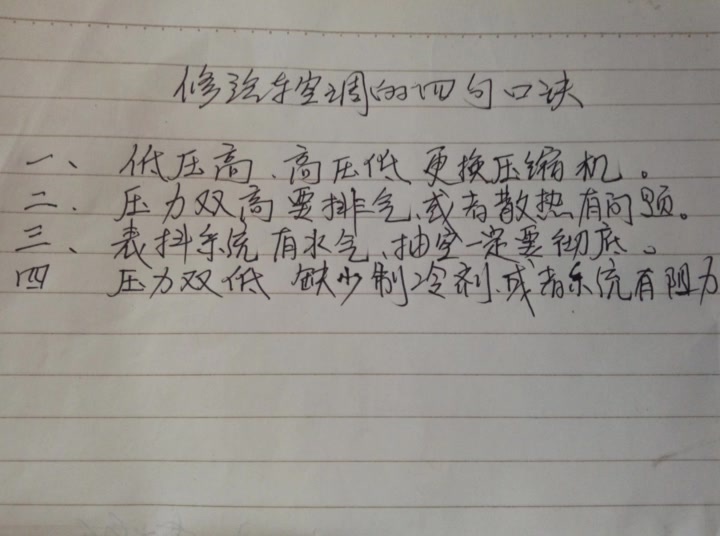 修治车空调的四句口诀
一、低压高、高压低更换压缩机。
二、压力双高要排气、或者散热有问题。
三、表抖系统有水气、抽空一定要彻底。
四 压力双低 缺少制冷剂、或者系统有阻力